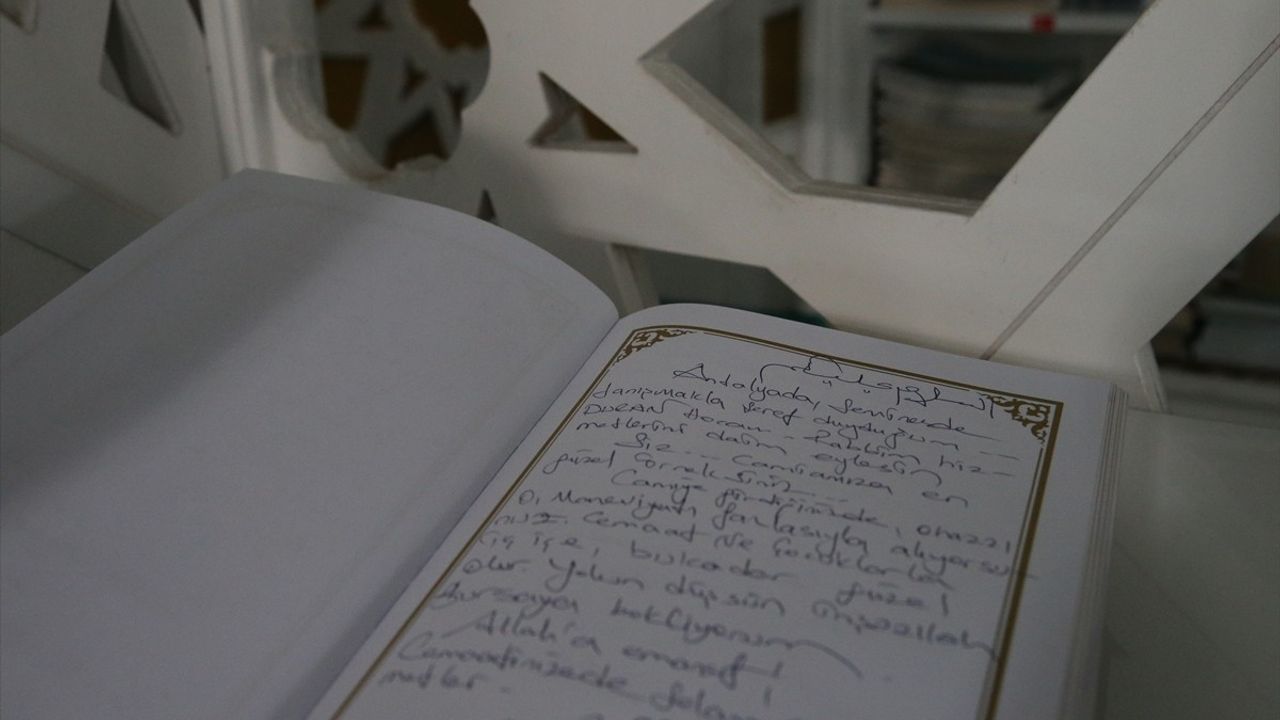 السلام عليكم
Antalyada, seminerde
tanışmakla şeref duyduğum
DURAN Hocam - Rabbim hiz-
metlerini daim eylesin
Siz... Camiamıza en
güzel örneksiniz...
Camiye girdiğinizde, o hazzı
O, Maneviyatı fazlasıyla alıyorsu-
nuz. Cemaat ve Çocuklarla
iç içe, bu kadar güzel
olur. Yolun düşsün inşaallah
Bursaya bekliyorum
Allah'a emanet!
Cemaatinizede selam